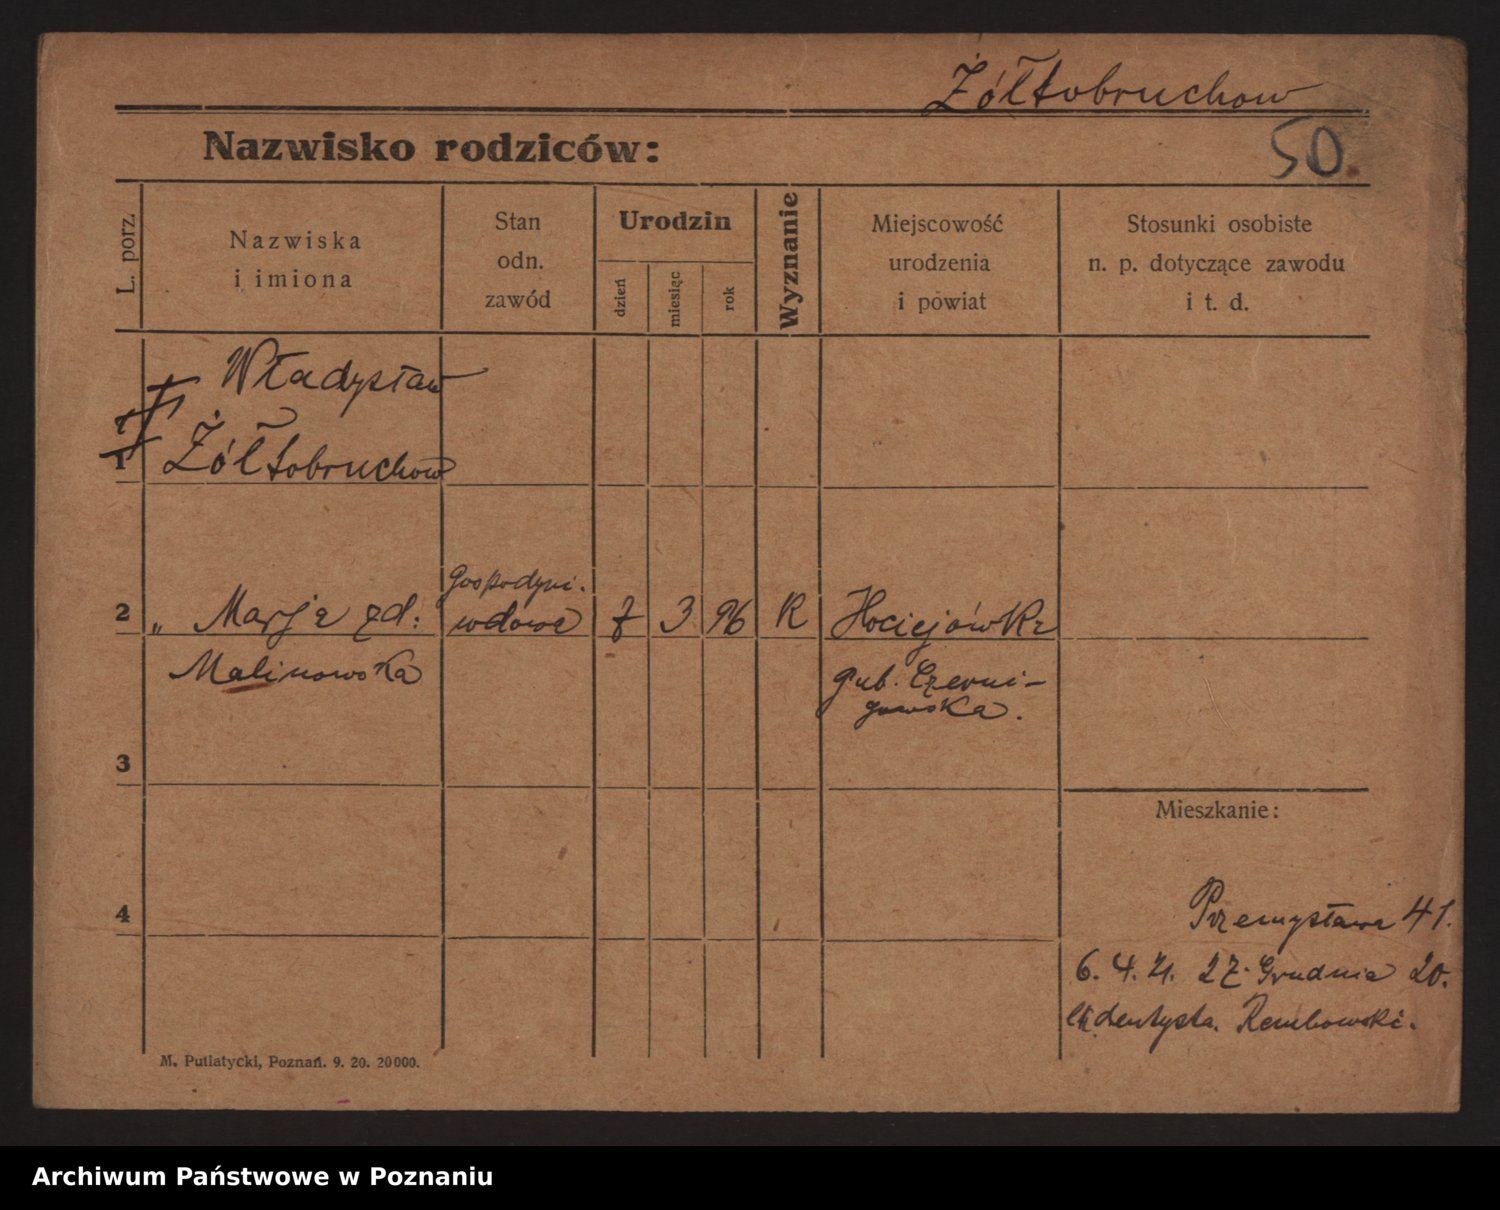 Żółtobruchow
Nazwisko rodziców:
50.
L. porz.
Nazwiska
i imiona
Stan
odn.
zawód
Urodzin
dzień
miesiąc
rok
Wyznanie
Miejscowość
urodzenia
i powiat
Stosunki osobiste
n. p. dotyczące zawodu
i t. d.
1
Władysław
Żółtobruchow
2
„ Marja zd:
Malinowska
Gospodyni.
wdowa
7 3 96 R
Hociejówka
gub. Czerni-
gowska.
3
4
Mieszkanie:
Przemysława 41.
6. 4. 21. 27. Grudnia 20.
dentysta. Rembowski.
M. Putiatycki, Poznań. 9. 20. 20000.
Archiwum Państwowe w Poznaniu